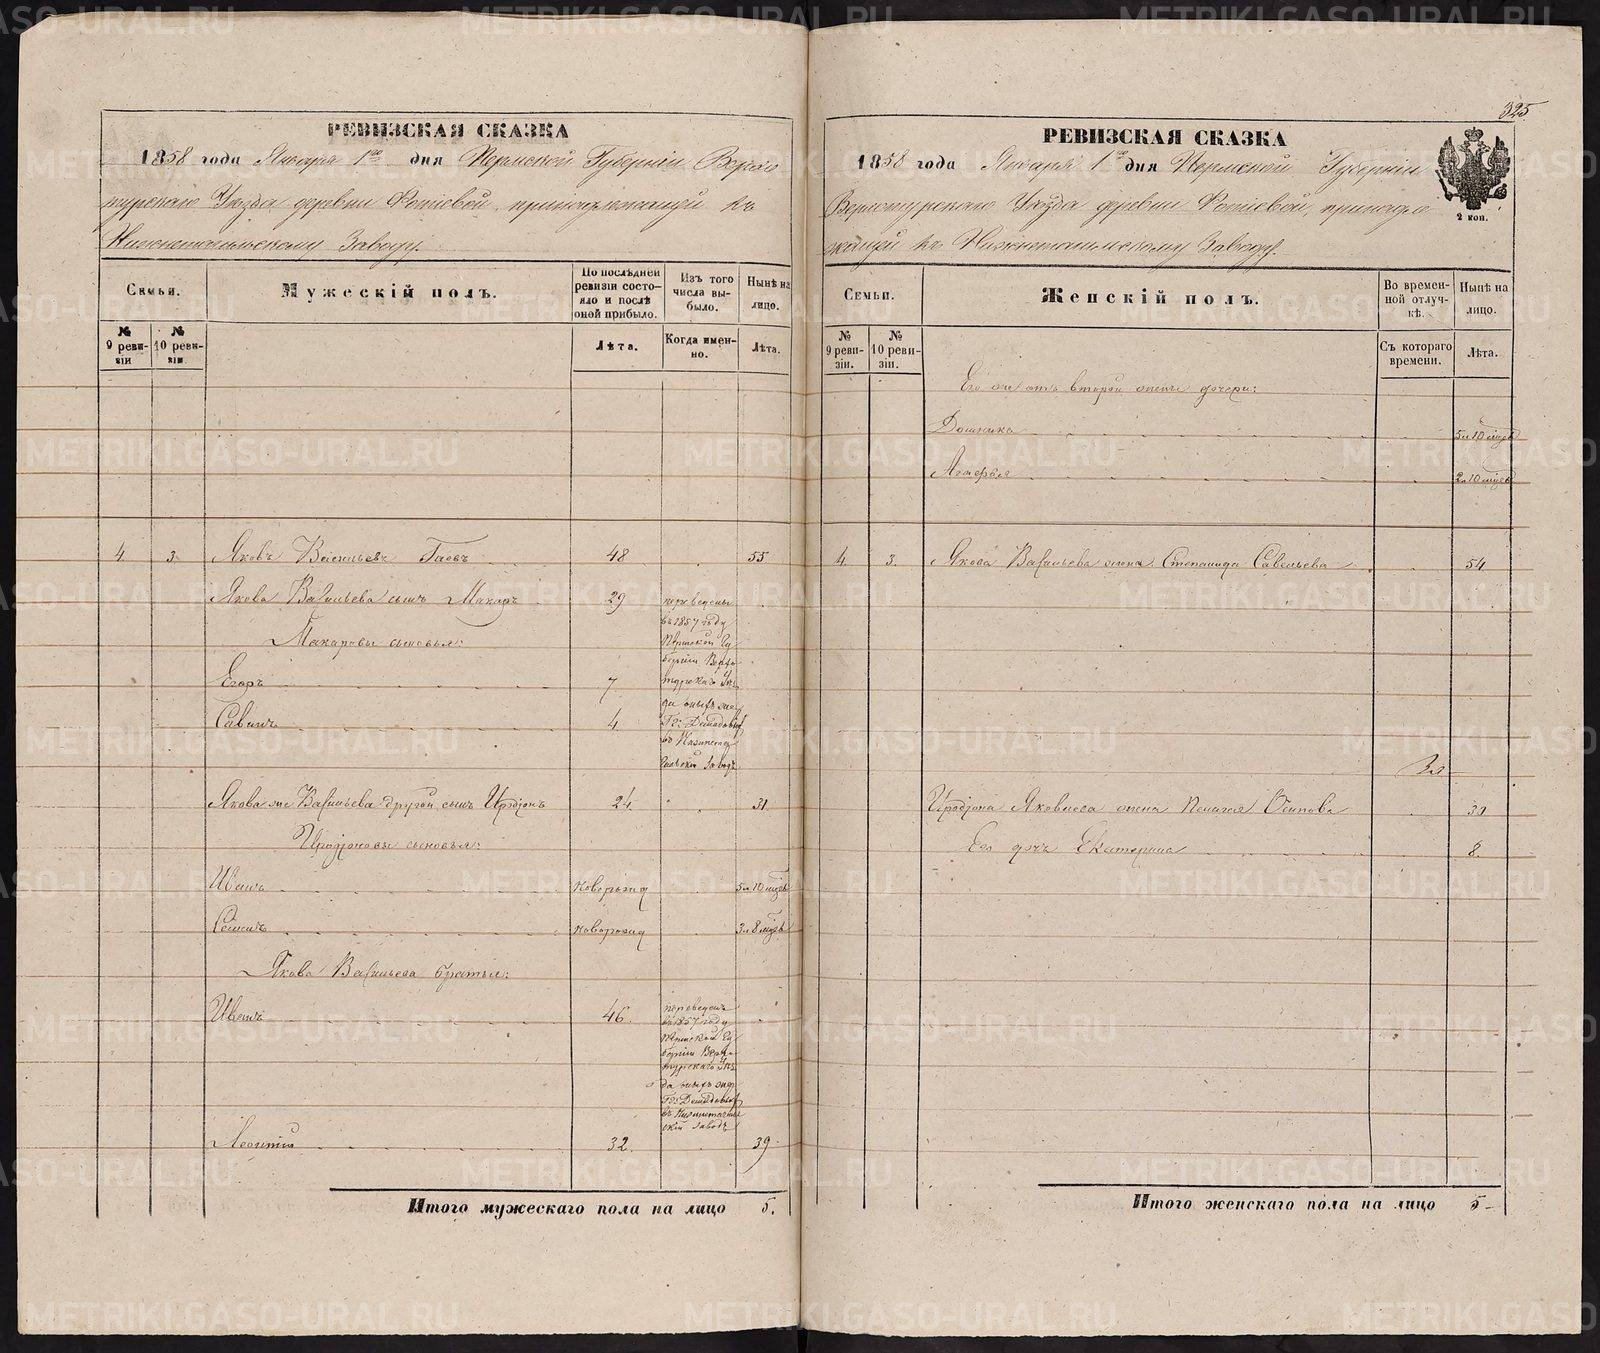 325
РЕВИЗСКАЯ СКАЗКА
1858 года Января 1го дня Пермской Губернiи Верхо
турскаго Уѣзда деревни принадлежащей къ
Нижнетагильскому Заводу.
Семьи.
Мужескiй полъ.
По послѣдней ревизiи состояло и послѣ оной прибыло.
Изъ того числа выбыло.
Нынѣ на лицо.
№ 9 ревизiи
№ 10 ревизiи
Лѣта.
Когда именно.
Лѣта.
4. 3. Яковъ Васильевъ Гаевъ 48 55
Якова Васильева сынъ Макаръ 29
переведены
въ 1857 году
Пермской Гу
бернiи Верхо
турскаго Уѣз
да
Гг: Демидовых
въ
заводъ
Макаровы сыновья:
Егоръ 7
Савинъ 4
Якова же Васильева другой сынъ Иродiонъ 24 31
Иродiоновы сыновья:
Иванъ новорожд 5 л 10 мцвъ
Семенъ новорожд 3 л 8 мцвъ
Якова Васильева братья:
Иванъ 46
переведенъ
въ 1857 году
Пермской Гу
бернiи Верхо
турскаго Уѣз
да
Гг: Демидовых
въ Нижнетагиль
скiй заводъ
Леонтiй 32. 39
Итого мужескаго пола на лицо 5.
РЕВИЗСКАЯ СКАЗКА
1858 года Января 1го дня Пермской Губернiи
Верхотурскаго Уѣзда деревни принадле
жащей къ Нижнетагильскому Заводу.
2 коп.
Семьи.
Женскiй полъ.
Во временной отлучкѣ.
Нынѣ на лицо.
№ 9 ревизiи.
№ 10 ревизiи.
Съ котораго времени.
Лѣта.
Его же отъ второй жены дочери:
Домника 5 л 10 мцвъ
2 л 10 мцвъ
4. 3. Якова Васильева жена Степанида Савельева 54
Иродiона Яковлева жена Пелагея Осипова 30
Его дочь Екатерина 8.
Итого женскаго пола на лицо 5
METRIKI.GASO-URAL.RU